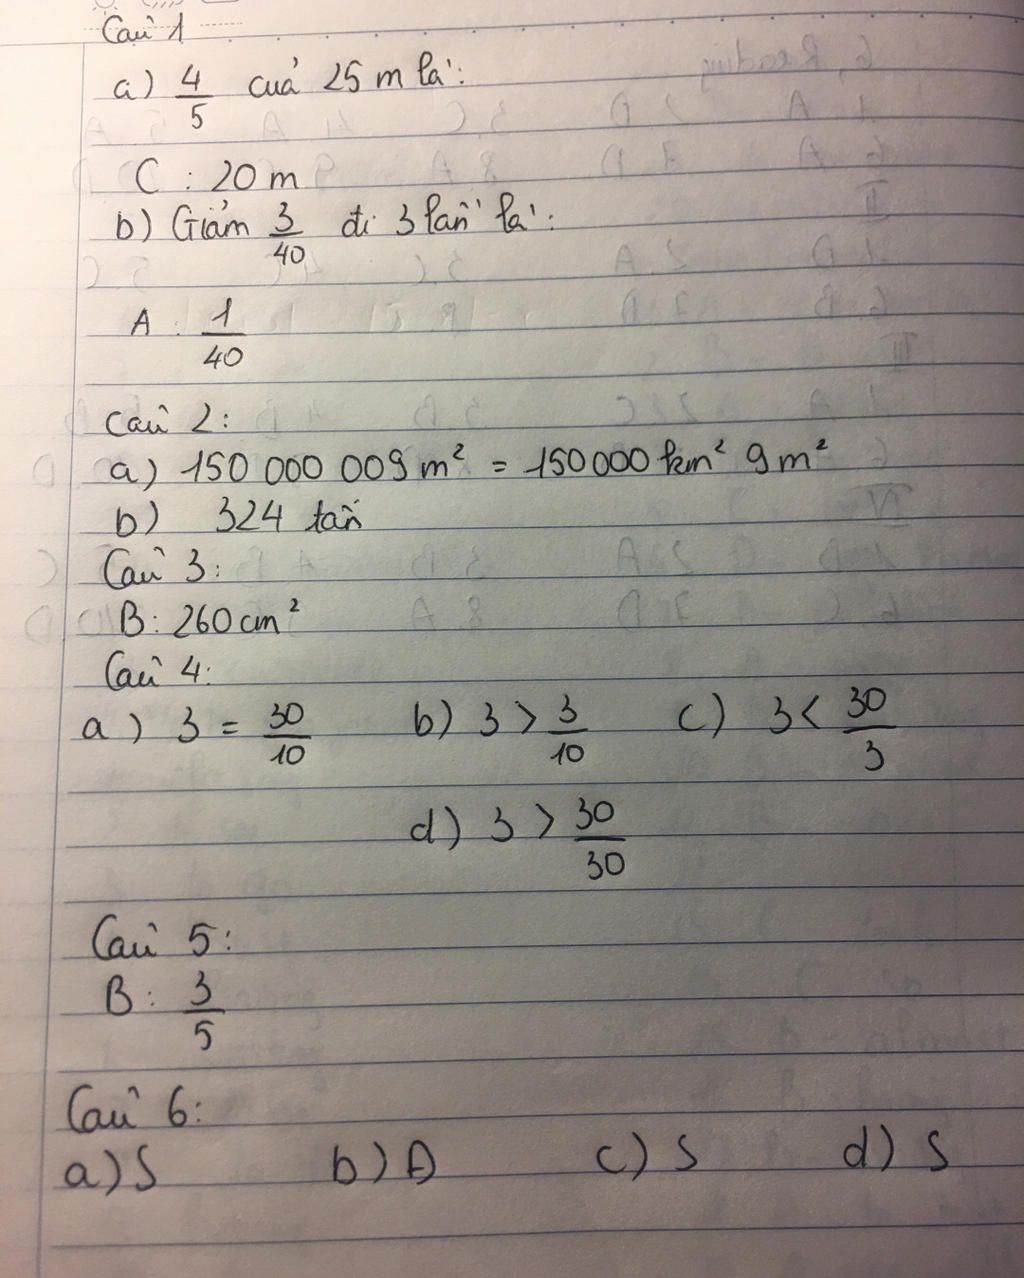 Câu 1
a) 4/5 của 25 m là:
C : 20 m
b) Giảm 3/40 đi 3 lần là:
A : 1/40
Câu 2:
a) 150 000 009 m² = 150000 km² 9 m²
b) 324 tấn
Câu 3:
B: 260 cm²
Câu 4:
a) 3 = 30/10 b) 3 > 3/10 c) 3 < 30/3
d) 3 > 30/30
Câu 5:
B: 3/5
Câu 6:
a) S b) Đ c) S d) S